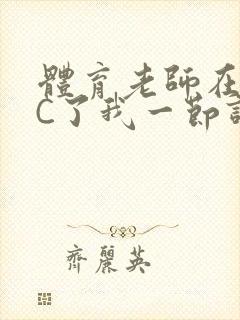 體育老師在
C了我一節
齊麗英